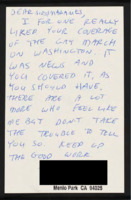 DEAR
I FOR ONE REALLY
LIKED YOUR COVERAGE
OF THE GAY MARCH
ON WASHINGTON. IT
WAS NEWS AND
YOU COVERED IT, AS
YOU SHOULD HAVE.
THERE ARE A LOT
MORE WHO FEEL LIKE
ME BUT DON'T TAKE
THE TROUBLE TO TELL
YOU SO. KEEP UP
THE GOOD WORK.
Menlo Park CA 94025